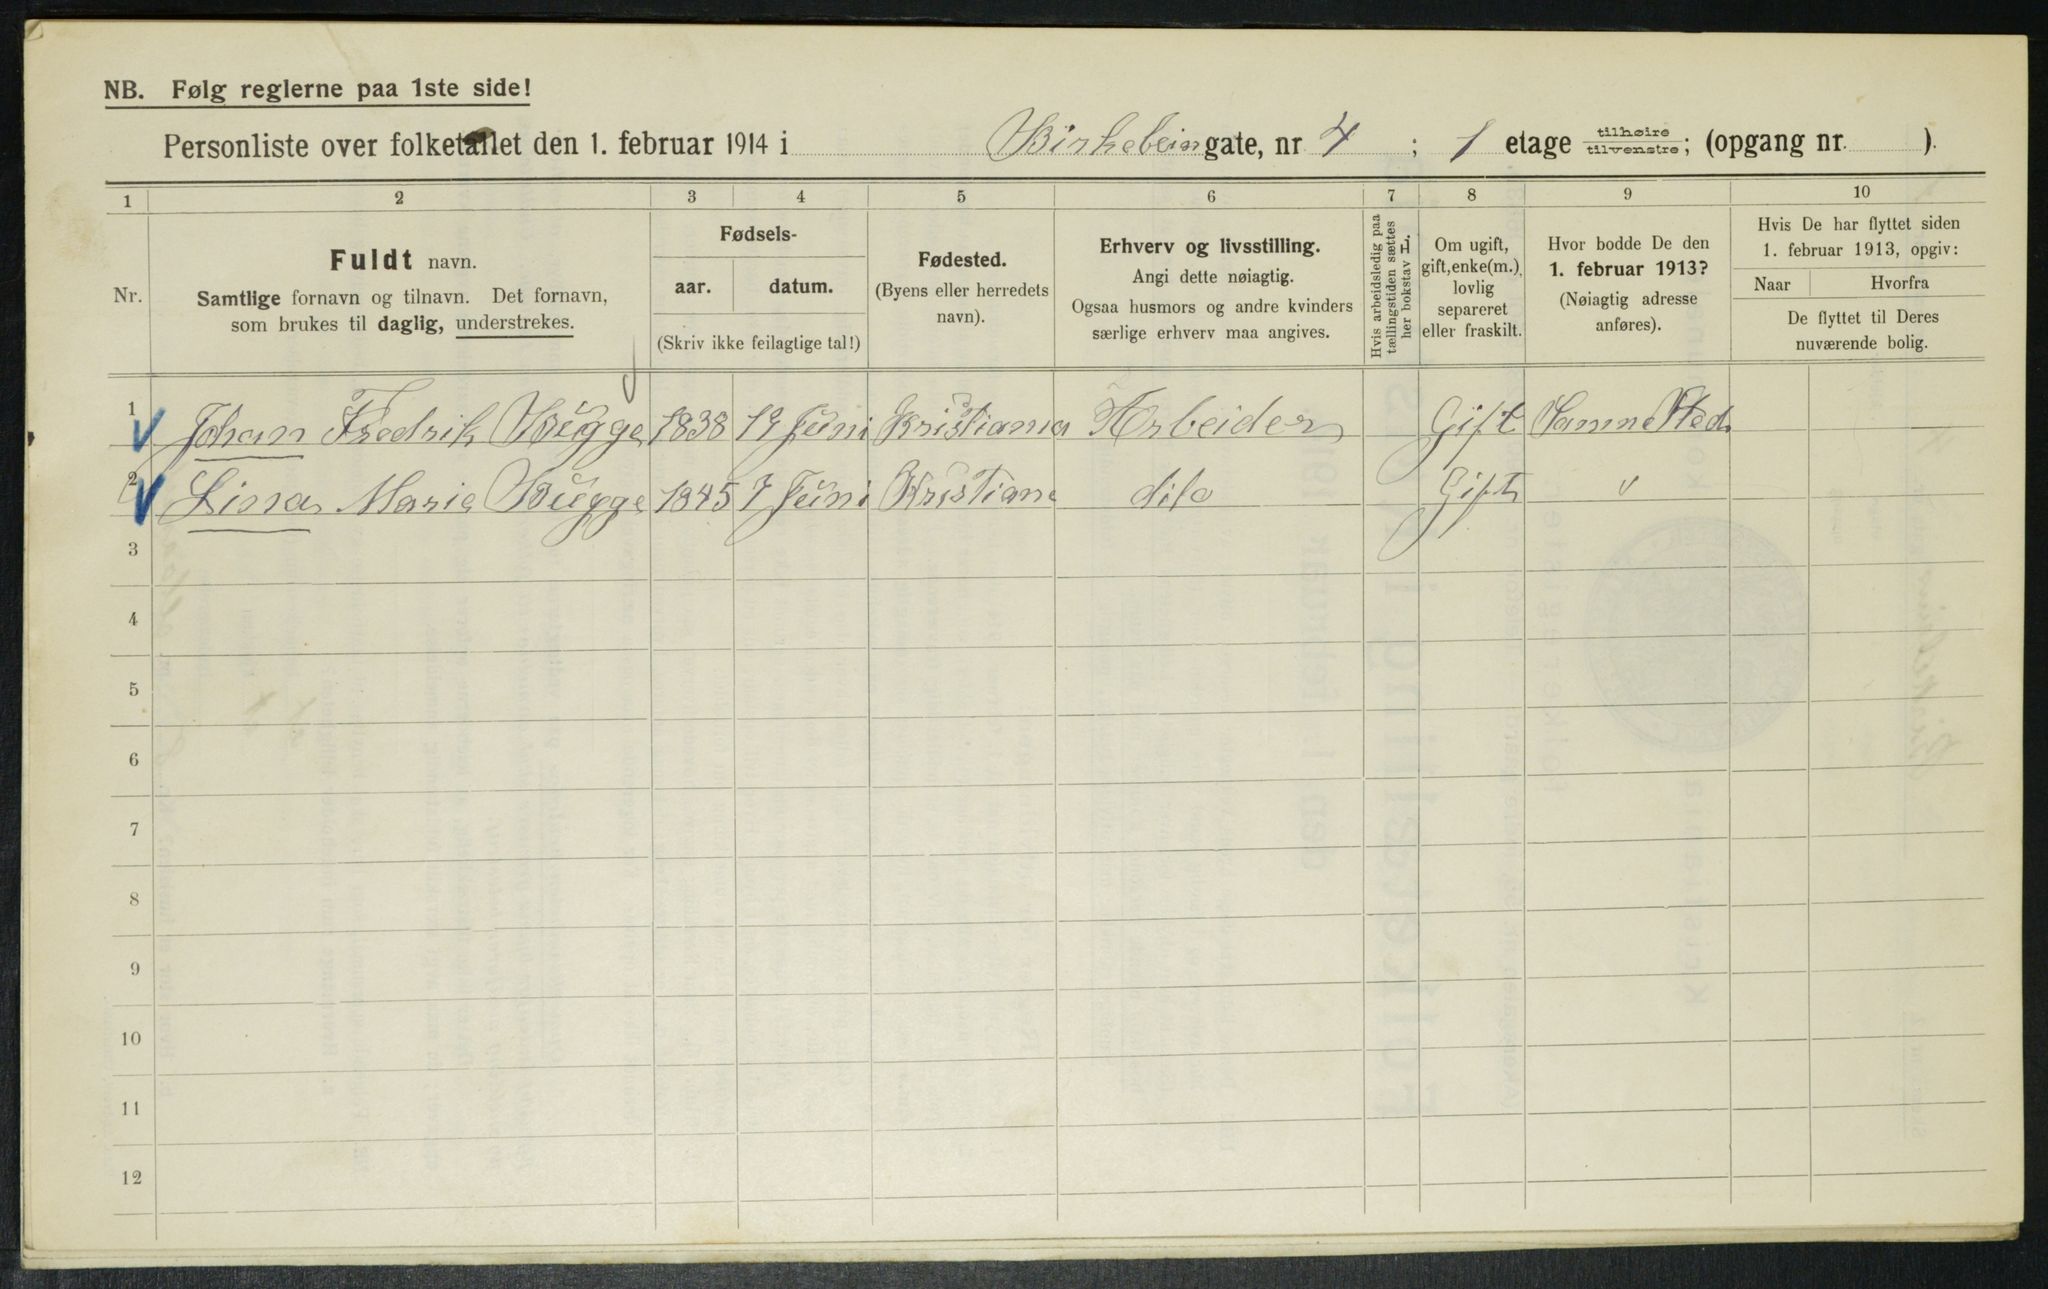 NB. Følg reglerne paa 1ste side!
Personliste over folketallet den 1. februar 1914 i Birkebeingate, nr 4 ; 1 etage tilhøire/tilvenstre; (opgang nr. ).
1 2 3 4 5 6 7 8 9 10
Nr.
Fuldt navn.
Samtlige fornavn og tilnavn. Det fornavn,
som brukes til daglig, understrekes.
Fødsels-
aar. datum.
(Skriv ikke feilagtige tal!)
Fødested.
(Byens eller herredets
navn).
Erhverv og livsstilling.
Angi dette nøiagtig.
Ogsaa husmors og andre kvinders
særlige erhverv maa angives.
Hvis arbeidsledig paa
tællingstiden sættes
her bokstav L.
Om ugift,
gift, enke(m.),
lovlig
separeret
eller fraskilt.
Hvor bodde De den
1. februar 1913?
(Nøiagtig adresse
anføres).
Hvis De har flyttet siden
1. februar 1913, opgiv:
Naar Hvorfra
De flyttet til Deres
nuværende bolig.
1 Johan Fredrik Bugge 1838 19 Juni Kristiania Arbeider Gift Samme Sted
2 Lina Marie Bugge 1845 7 Juni Kristiana dito Gift "
3
4
5
6
7
8
9
10
11
12